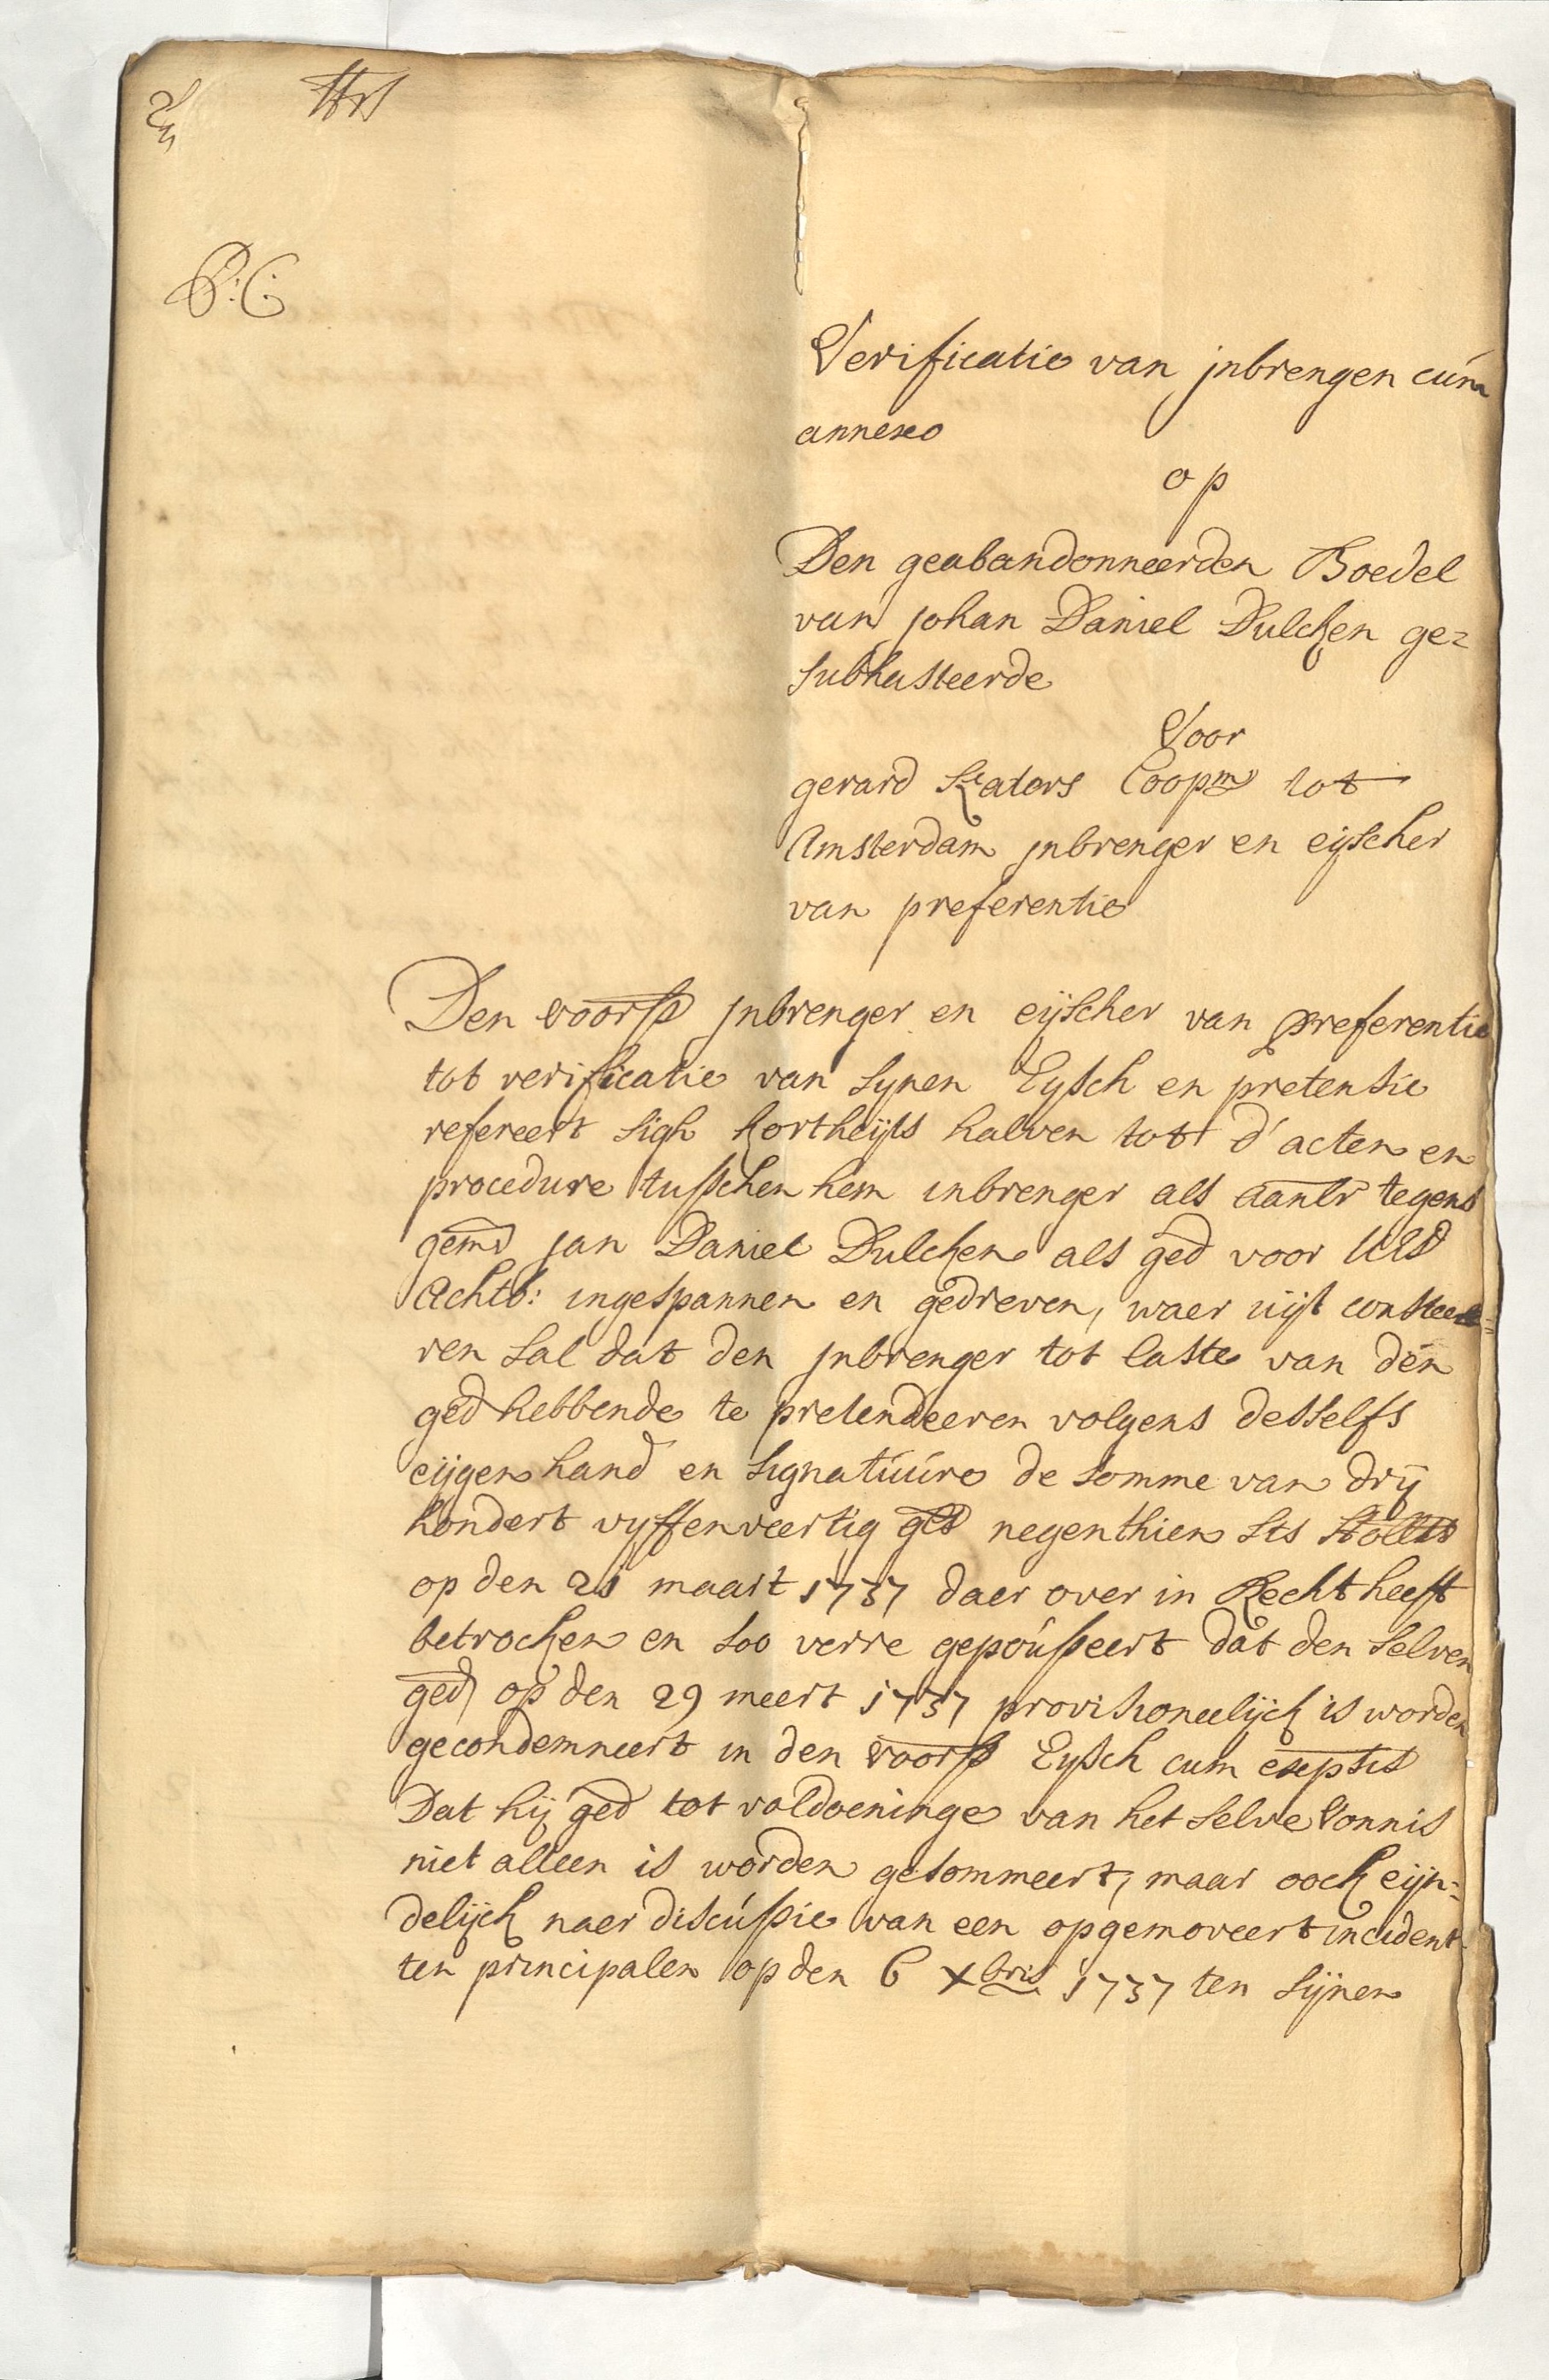 P: C:
Verificatie van jnbrengen cúm
annexo
op
Den geabandonneerden Boedel
van johan Daniel Dulcken ge=
subhasteerde
Voor
gerard Kators Coopm tot
Amsterdam jnbrenger en eijscher
van preferentie
Den voors jnbrenger en eijscher van preferentie
tot verificatie van synen Eysch en pretensie
refereert sigh kortheijts halven tot d'acten en
procedure tusschen hem inbrenger als aanlr tegens
gemd jan Daniel Dulcken als ged voor UEd
Achtb: ingespannen en gedreven, waer uijt constee=
ren sal dat den jnbrenger tot laste van den
ged hebbende te pretendeeren volgens desselfs
eijgen hand en signatúúre de somme van drij
hondert vyffenveertig gls negenthien sts hollts
op den 21 maart 1737 daer over in Recht heeft
betrocken en soo verre gepousseert dat den selven
ged op den 29 meert 1737 provisioneelijck is worden
gecondemneert in den voors Eysch cum exepsis
Dat hij ged tot voldoeninge van het selve Vonnis
niet alleen is worden gesommeert, maar oock eijn=
delijck naer discússie van een opgemoveert incident
ten principalen op den 6 Xbris 1737 ten sijnen